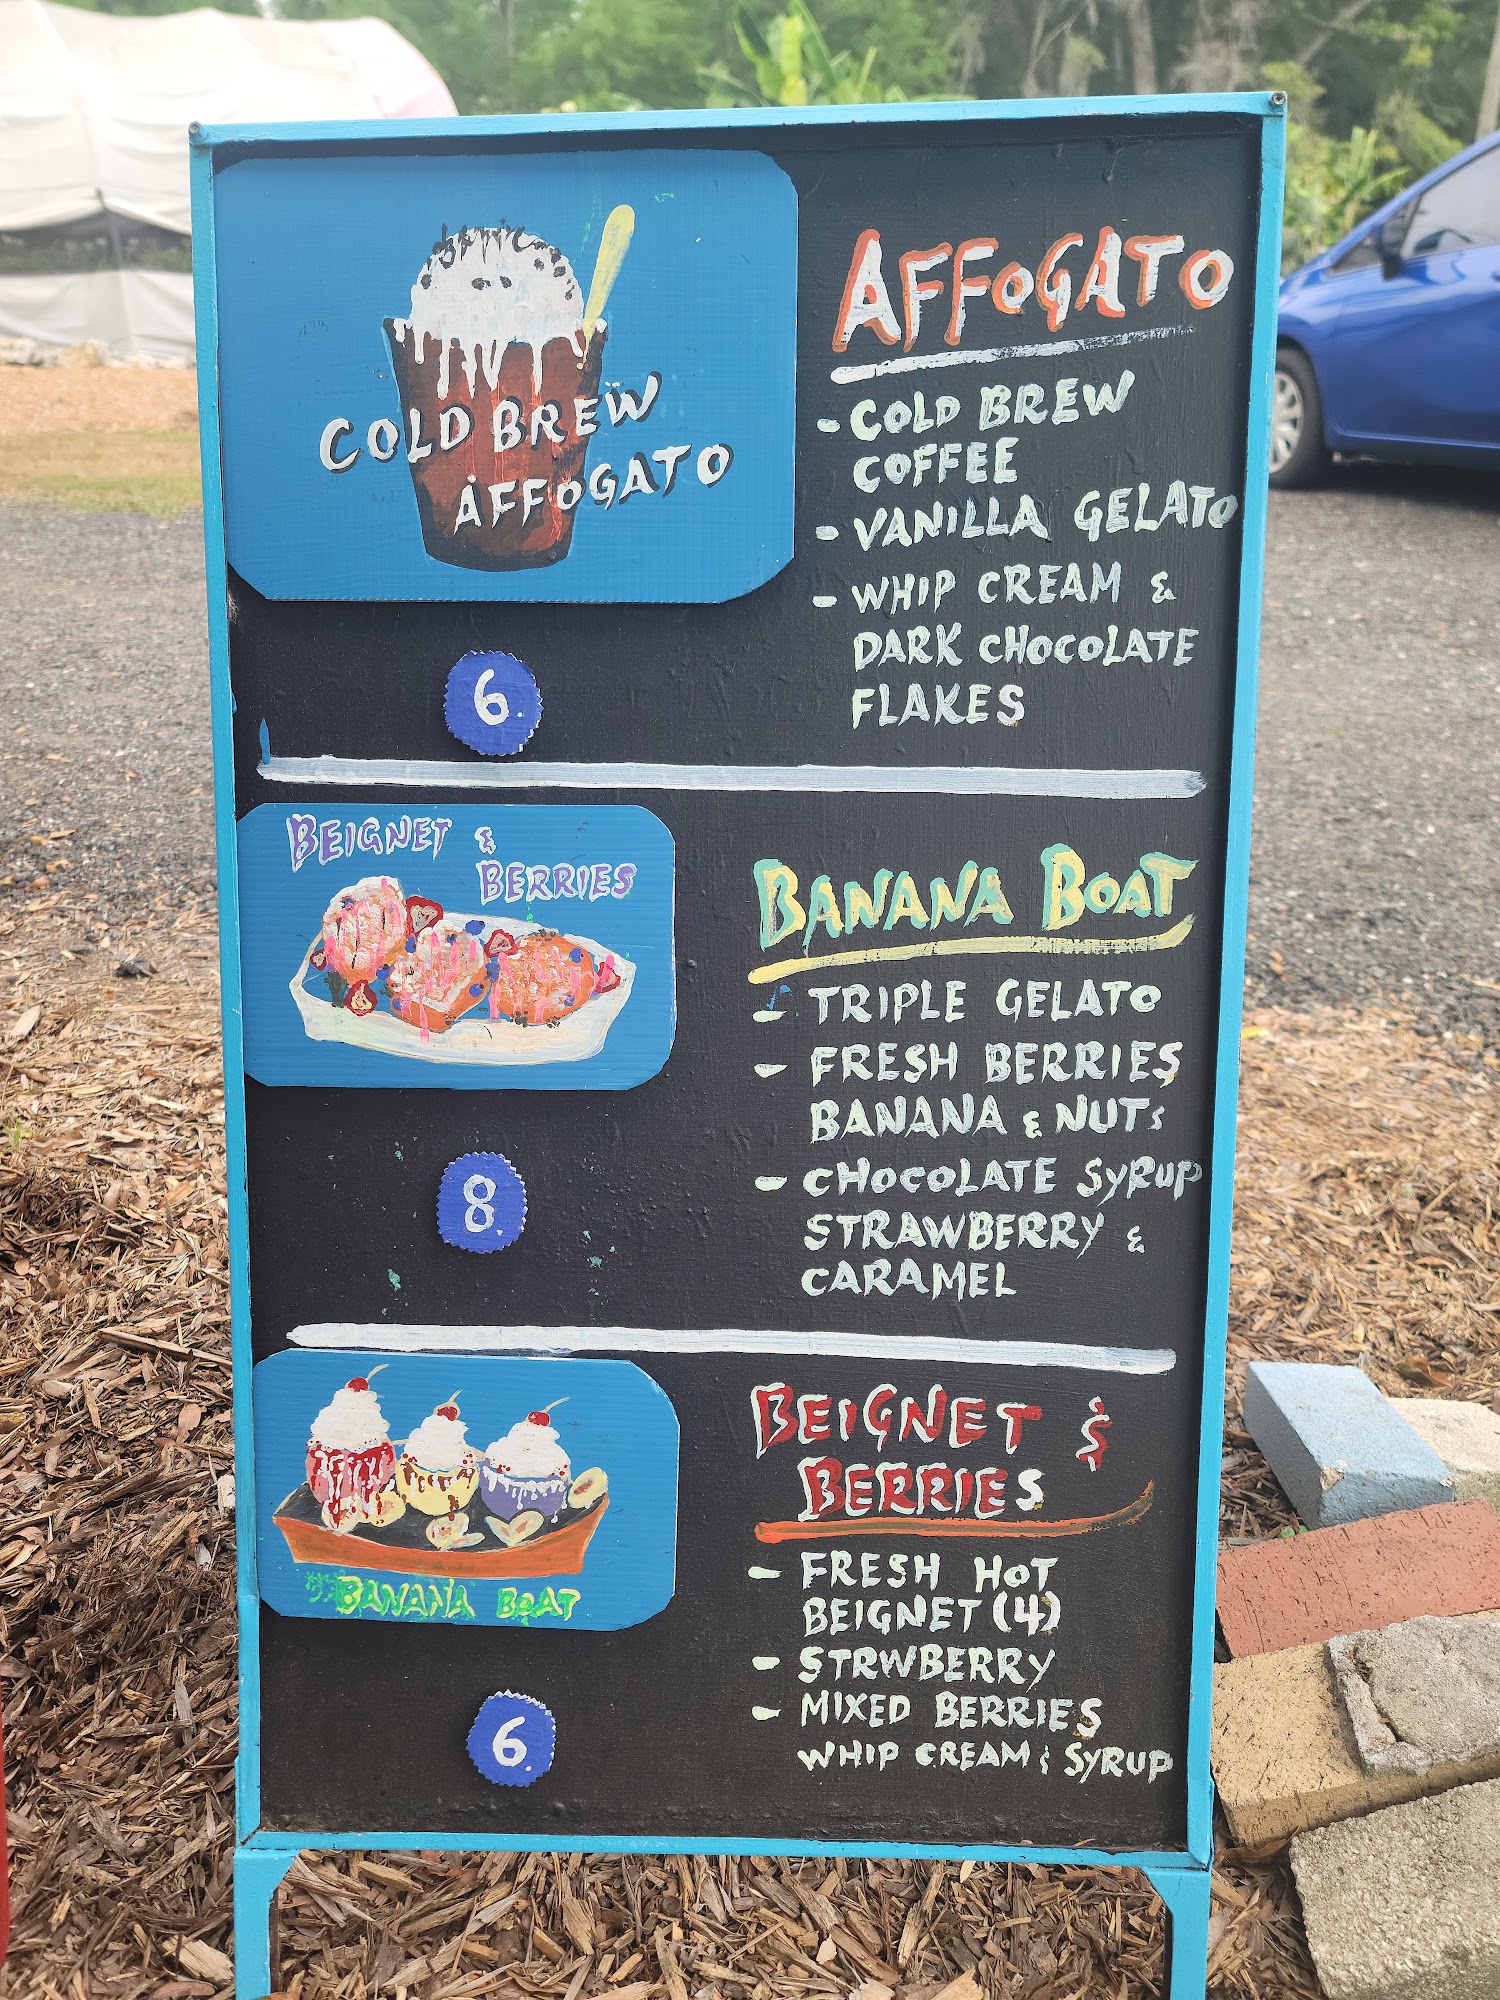 COLD BREW
AFFOGATO
6.
AFFOGATO
- COLD BREW
COFFEE
- VANILLA GELATO
- WHIP CREAM &
DARK CHOCOLATE
FLAKES
BEIGNET &
BERRIES
8.
BANANA BOAT
- TRIPLE GELATO
- FRESH BERRIES
BANANA & NUTS
- CHOCOLATE SYRUP
STRAWBERRY &
CARAMEL
BANANA BOAT
6.
BEIGNET &
BERRIES
- FRESH HOT
BEIGNET (4)
- STRWBERRY
- MIXED BERRIES
WHIP CREAM & SYRUP